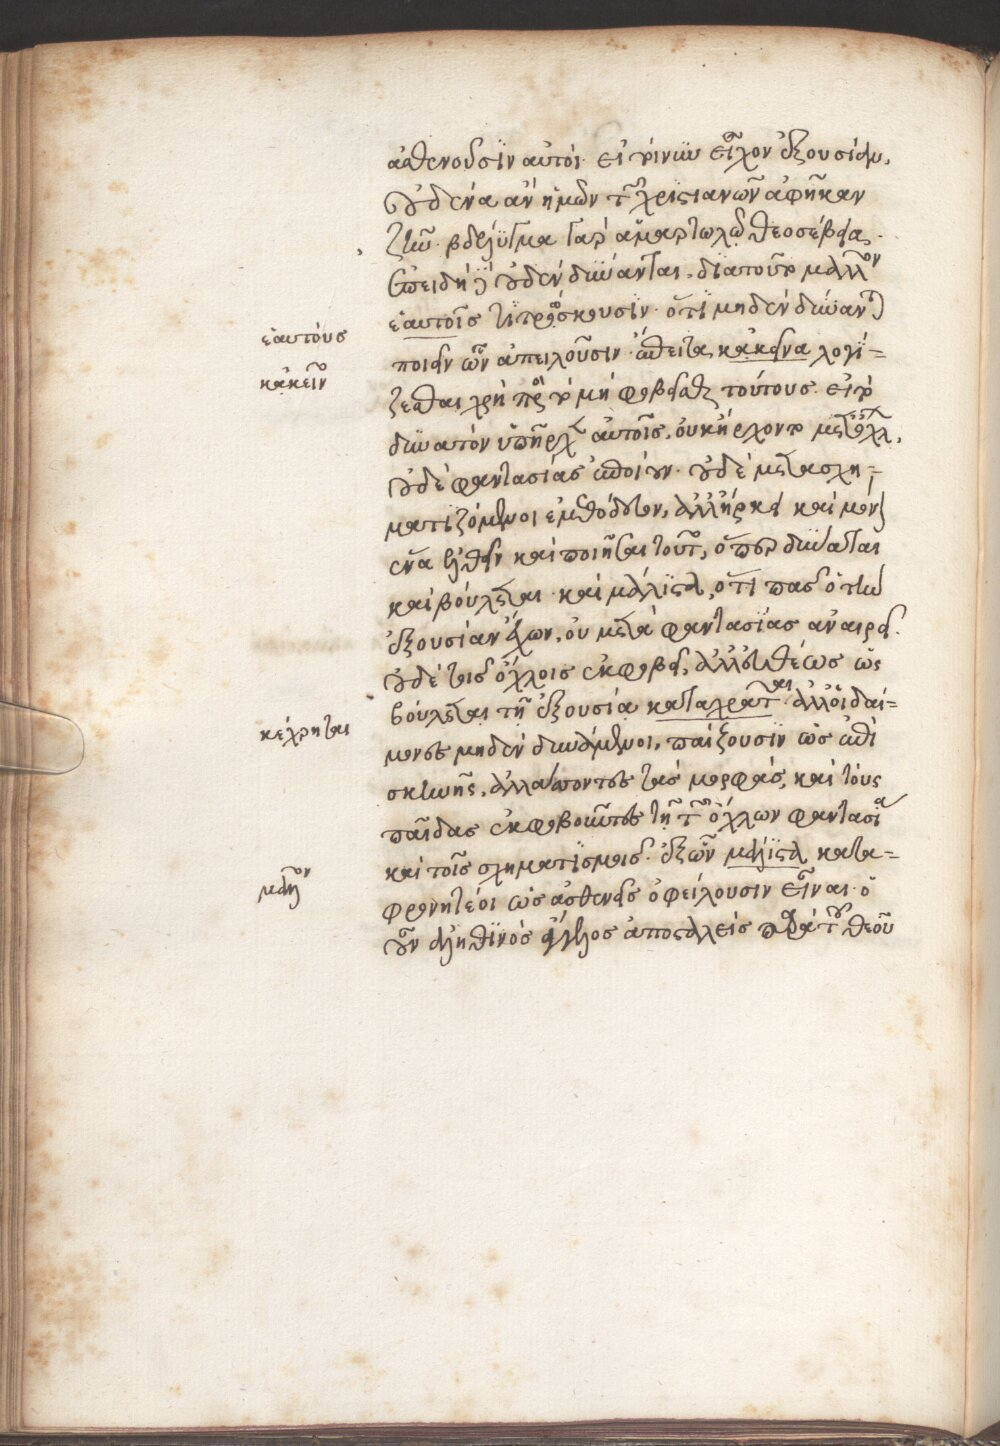 ἀσθενοῦσιν αὐτοί. εἰ εἶχον ἐξουσίαν,
οὐδένα ἂν ἡμῶν τῶν χριστιανῶν ἀφῆκαν
ζῆν. βδέλυγμα γὰρ ἁμαρτωλῷ θεοσέβεια.
ἐπειδὴ δὲ οὐδὲν δύνανται, διὰ τοῦτο μᾶλλον
ἑαυτοῖς τιτρώσκουσιν. ὅτι μηδὲν δύνανται
ἑαυτοὺς
ποιεῖν ὧν ἀπειλοῦσιν. ἔπειτα κἀκεῖνα λογί=
κἀκεῖνο
ζεσθαι χρὴ πρὸς τὸ μὴ φοβεῖσθαι τούτους. εἰ τὸ
δυνατὸν ὑπῆρχεν αὐτοῖς, οὐκ ἤρχοντο μετὰ ὄχλου,
οὐδὲ φαντασίας ἐποίουν. οὐδὲ μετασχη=
ματιζόμενοι ἐμεθόδευον, ἀλλ' ἤρκει καὶ μόνον
ἕνα ἐλθεῖν καὶ ποιῆσαι τοῦτο, ὅπερ δύναται
καὶ βούλεται. καὶ μάλιστα, ὅτι πᾶς ὁ τὴν
ἐξουσίαν ἔχων, οὐ μετὰ φαντασίας ἀναιρεῖ.
οὐδὲ τοῖς ὄχλοις ἐκφοβεῖ, ἀλλ' εὐθέως ὡς
βούλεται τῇ ἐξουσία καταχρᾶται. ἀλλ' οἱ δαί=
κέχρηται
μονες μηδὲν δυνάμενοι, παίζουσιν ὡς ἐπὶ
σκηνῆς, ἀλλάσσοντες τὰς μορφάς, καὶ τοὺς
παῖδας ἐκφοβοῦντες τῇ τῶν ὄχλων φαντασίᾳ
καὶ τοῖς σχηματισμοῖς. ἐξ ὧν μάλιστα κατα=
μᾶλλον
φρονητέοι ὡς ἀσθενεῖς ὀφείλουσιν εἶναι. ὁ
οὖν ἀληθινὸς ἄγγελος ἀποσταλεὶς παρὰ τοῦ θεοῦ